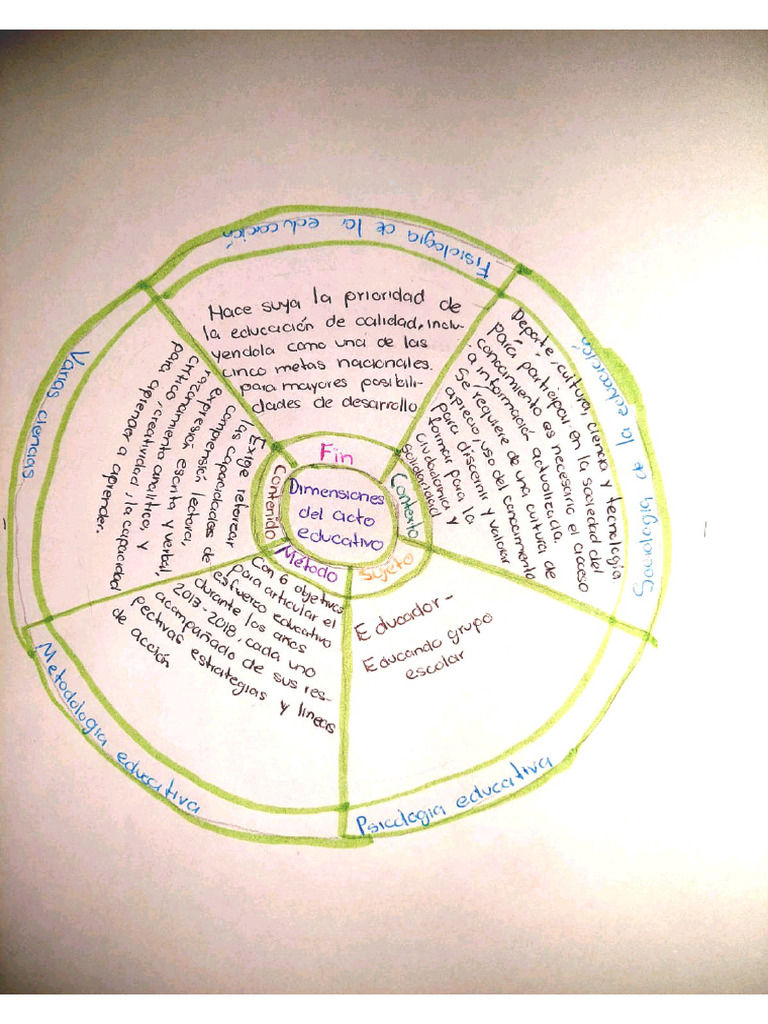 Dimensiones
del acto
educativo
Fin
Contexto
Sujeto
Método
Contenido
Fisiologia de la educación
Hace suya la prioridad de
la educación de calidad, inclu-
yendola como una de las
cinco metas nacionales.
para mayores posibili-
dades de desarrollo
Sociología de la educación
Depate, cultura, ciencia y tecnología
para participar en la sociedad del
conocimiento es necesario el acceso
a información actualizada.
Se requiere de una cultura de
aprecio, uso del conocimiento
para discernir y valorar
formar para la
ciudadanía y
solidaridad
Psicologia educativa
Educador-
Educando grupo
escolar
Metodologia educativa
Con 6 objetivos
para articular el
esfuerzo educativo
durante los años
2013-2018, cada uno
acompañado de sus res-
pectivas estrategias y lineas
de acción
Varias ciencias
Exige reforzar
las capacidades de
comprensión lectora,
expresión escrita y verbal,
razonamiento analítico, y
critico, creatividad, la capacidad
para aprender a aprender.